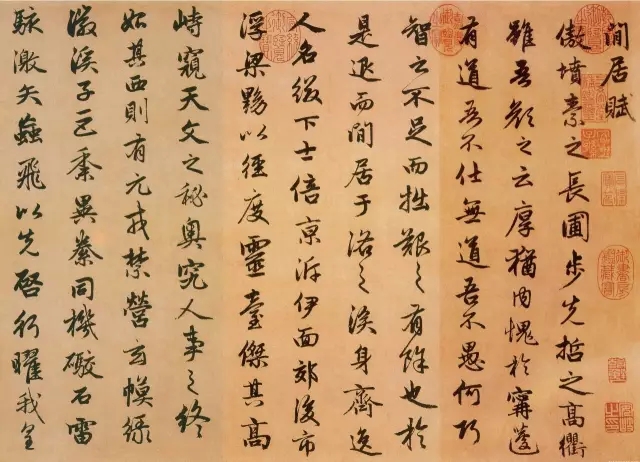 閒居賦
傲墳素之長圃步先哲之高衢
雖吾顏之云厚猶内愧於甯蘧
有道吾不仕無道吾不愚何巧
智之不足而拙艱之有餘也於
是退而閒居于洛之涘身齊逸
人名綴下士倍京泝伊面郊後市
浮梁黝以徑度靈臺傑其高
峙窺天文之秘奧究人事之終
始其西則有元戎禁營玄幙綠
徽溪子巨黍異絭同機礮石雷
駭激矢蝱飛以先啓行曜我皇